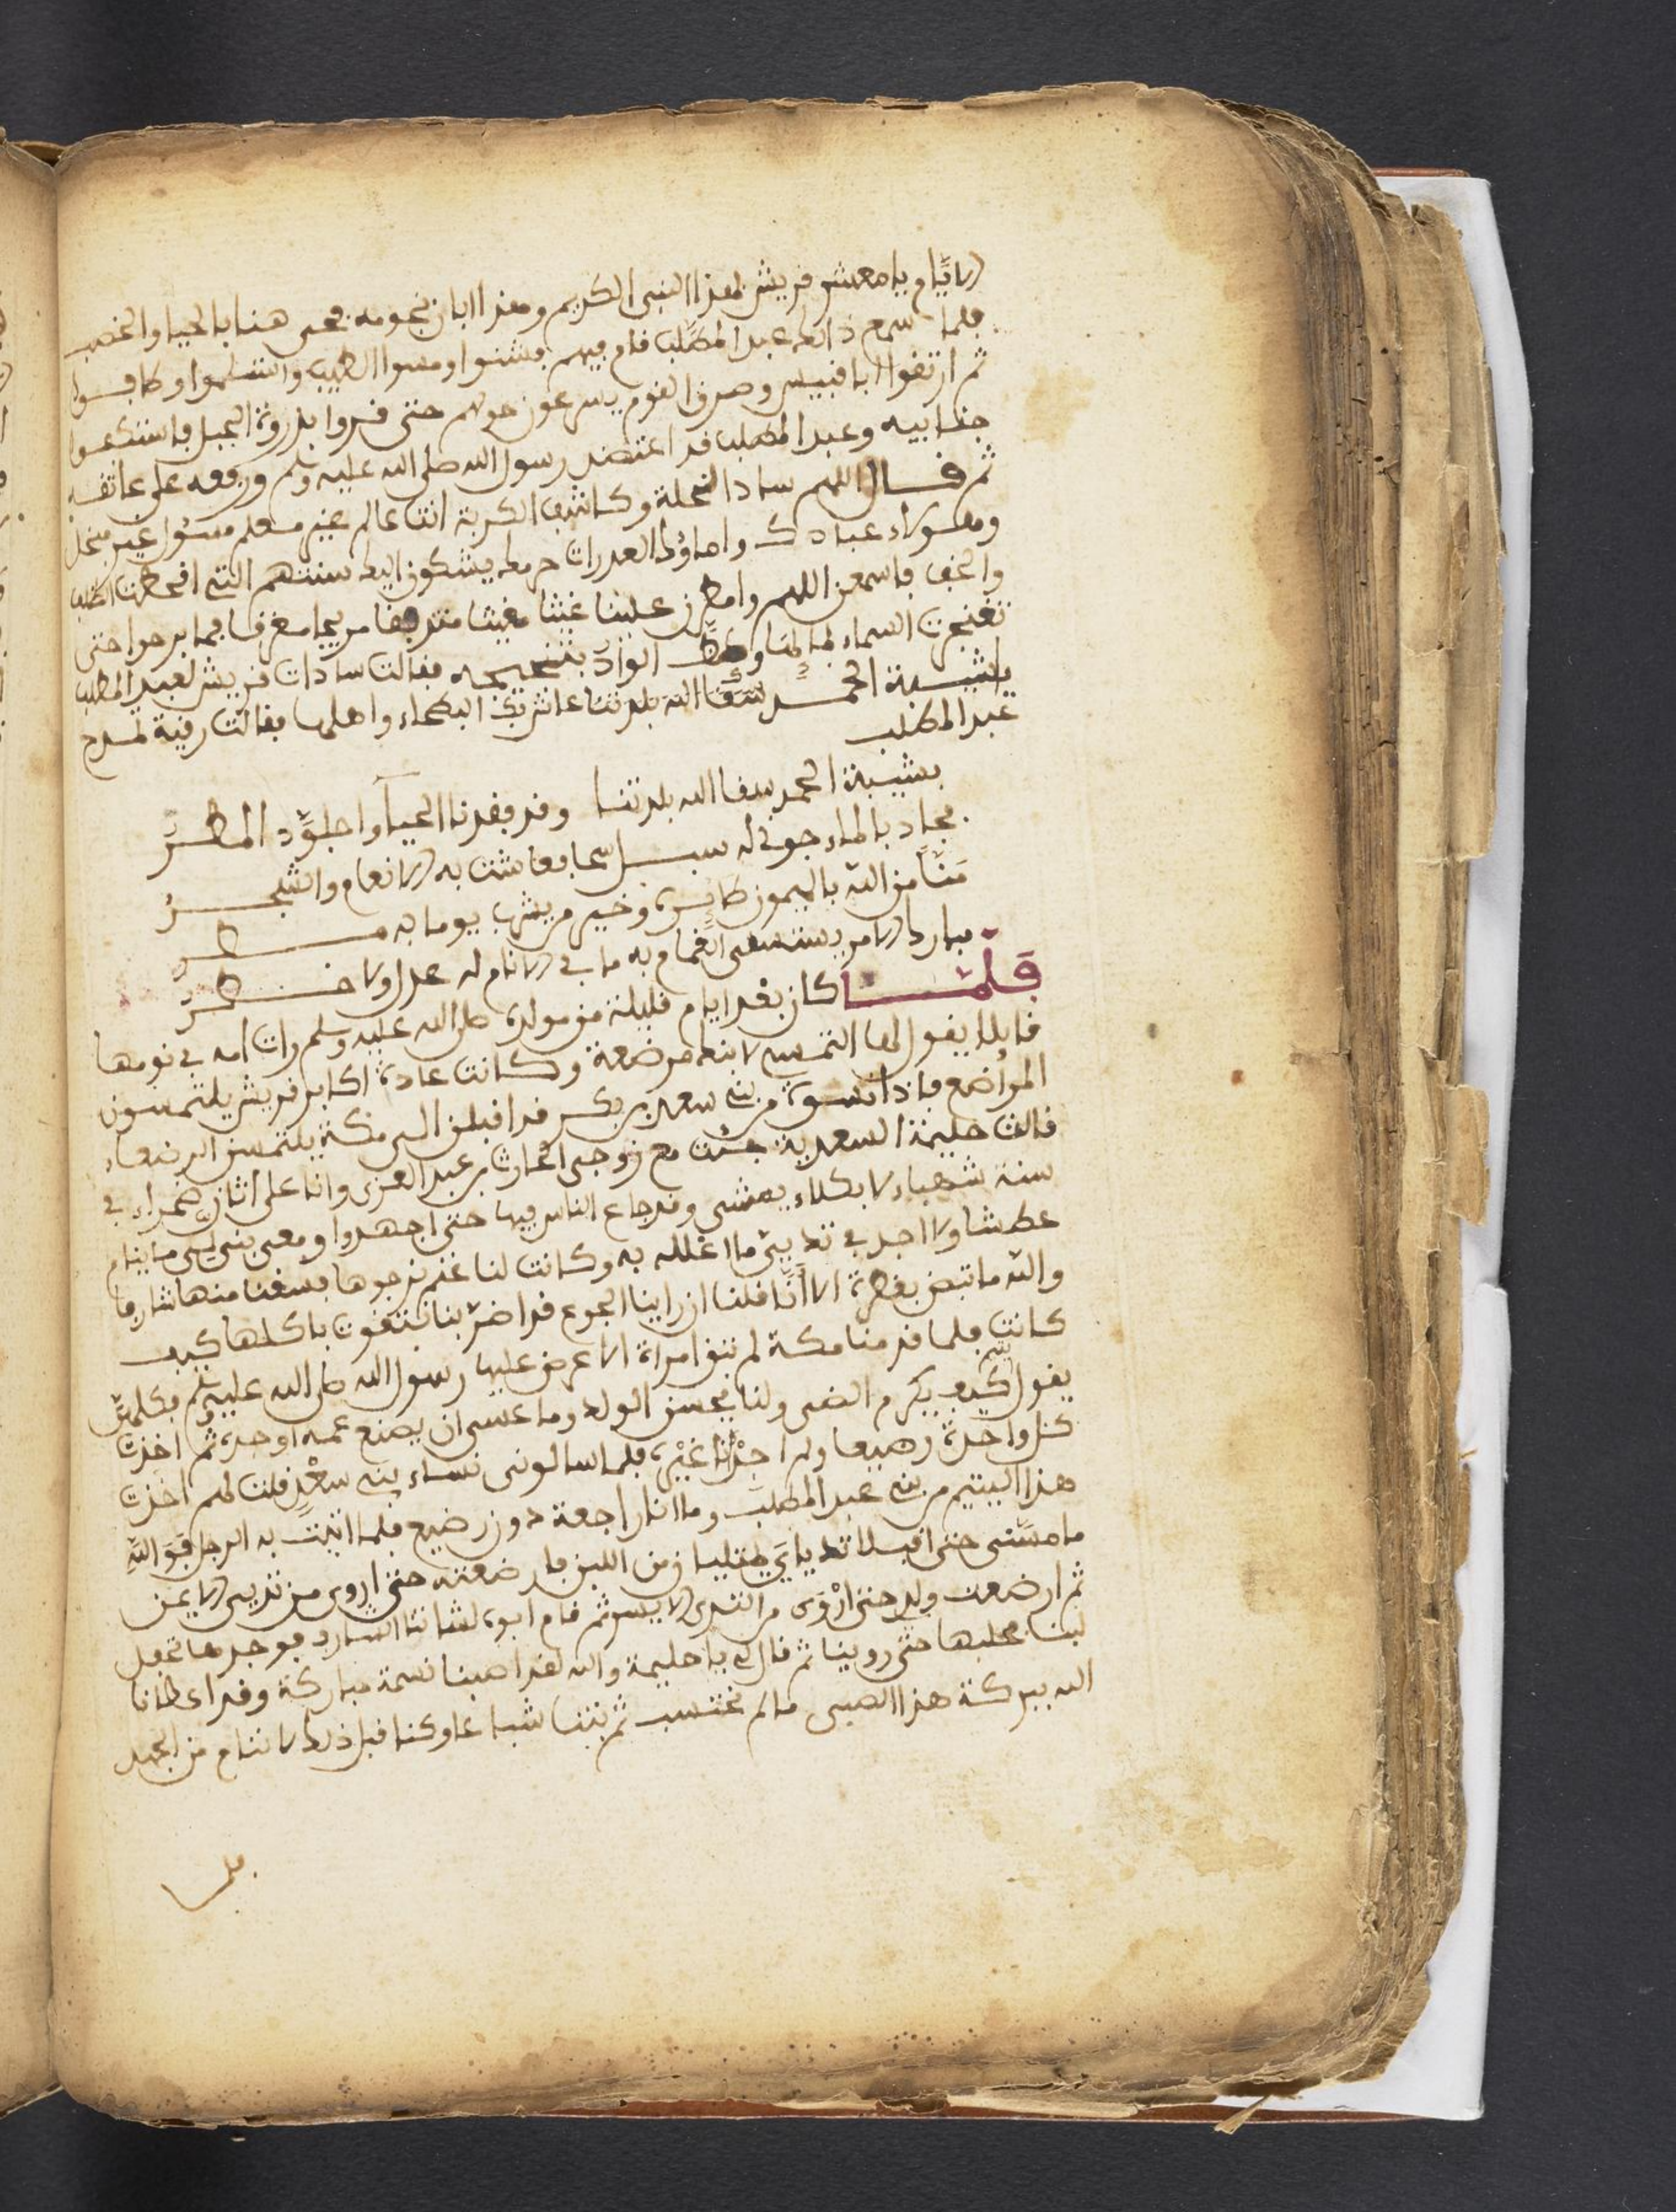 الايام يا معشر فريش لهذا النبي الكريم وهذا ابان نجومه فحي هنا بالحيا والخصب
فلما سمع ذالك عبد المطلب قام فيهم فشنوا ومسوا الطيب واستلموا وطافوا
ثم ارتقوا ابا قبيس وصرف القوم يسرعون حولهم حتى قروا بذروة الجبل فاستكعوا
جنابيه وعبد المطلب قد اعتضد رسول الله صلى الله عليه وسلم ورفعه على عاتقه
ثم قال اللهم ساد الخلة وكاشف الكربة انت عالم غير معلم مسئول غير مبخل
وهؤلاء عبادك واماؤك العدرات حرمك يشكون اليك سنتهم التي اقحطت الظلف
والخف فاسمعن اللهم وامطرن علينا غيثا مغيثا مريعا مغدقا فما برحوا حتى
تفجرت السماء بمائها وكظ الواد بثجيجه فقالت سادات قريش لعبد المطلب
يا شيبة الحمد سقا الله بلدتنا عاش بك البطحاء واهلها فقالت رقية تمدح
عبد المطلب
بشيبة الحمد سقا الله بلدتنا وقد فقدنا الحيا واجلوّد المطر
فجاد بالماء جوني له سبل سحا فعاشت به الانعام والشجر
منّا من الله بالميمون طايره وخير من بشرت يوما به مضر
مبارك الامر يستسقى الغمام به ما في الانام له عدل ولا خطر
فلمّا كان بعد ايام قليلة من مولده صلى الله عليه وسلم رات امه في نومها
قايلا يقول لها التمسي لابنك مرضعة وكانت عادة اكابر قريش يلتمسون
المراضع فاذا نسوة من بني سعد بن بكر قد اقبلن الى مكة يلتمسن الرضعاء
قالت حليمة السعدية جئت مع زوجي الحارث بن عبد العزى وانا على اتان قمراء في
سنة شهباء لا بكلاء يمشى وقد جاع الناس فيها حتى اجهدوا ومعي بني لي ما ينام
عطشا ولا اجد في ثديي ما اعلله به وكانت لنا غنم نرجوها فسقنا منها شارفا
والله ما تبض بقطرة الا انا قلنا ان راينا الجوع قد اضر بنا ناكلها كيف
كانت فلما قدمنا مكة لم تبق امراة الا عرض عليها رسول الله صلى الله عليه وسلم فكلهن
يقول كيف يكرم الضى ولنا يحسن الولد وما عسى ان يصنع عمه او جده ثم اخذت
كل واحدة رضيعا ولم اجد انا غيره فلما سالوني نساء بني سعد قلت لهم اخذت
هذا اليتيم من بني عبد المطلب وما انا راجعة دون رضيع فلما اتيت به الرجل فوالله
ما مسني حتى اقبلا ثدياي من اللبن فارضعته حتى اروى من ثديي الايمن
ثم ارضعت ولدي حتى اروى من الثدي الايسر ثم قام ابوه لشاتنا الشارف فوجدها تحفل
لبنا فحلبها حتى روينا ثم قال لي يا حليمة والله لقد اصبنا نسمة مباركة وقد اعطانا
الله ببركة هذا الصبي ما لم نحتسب ثم بتنا شباعا وكنا قبل ذلك لا ننام من الجهد
فلما